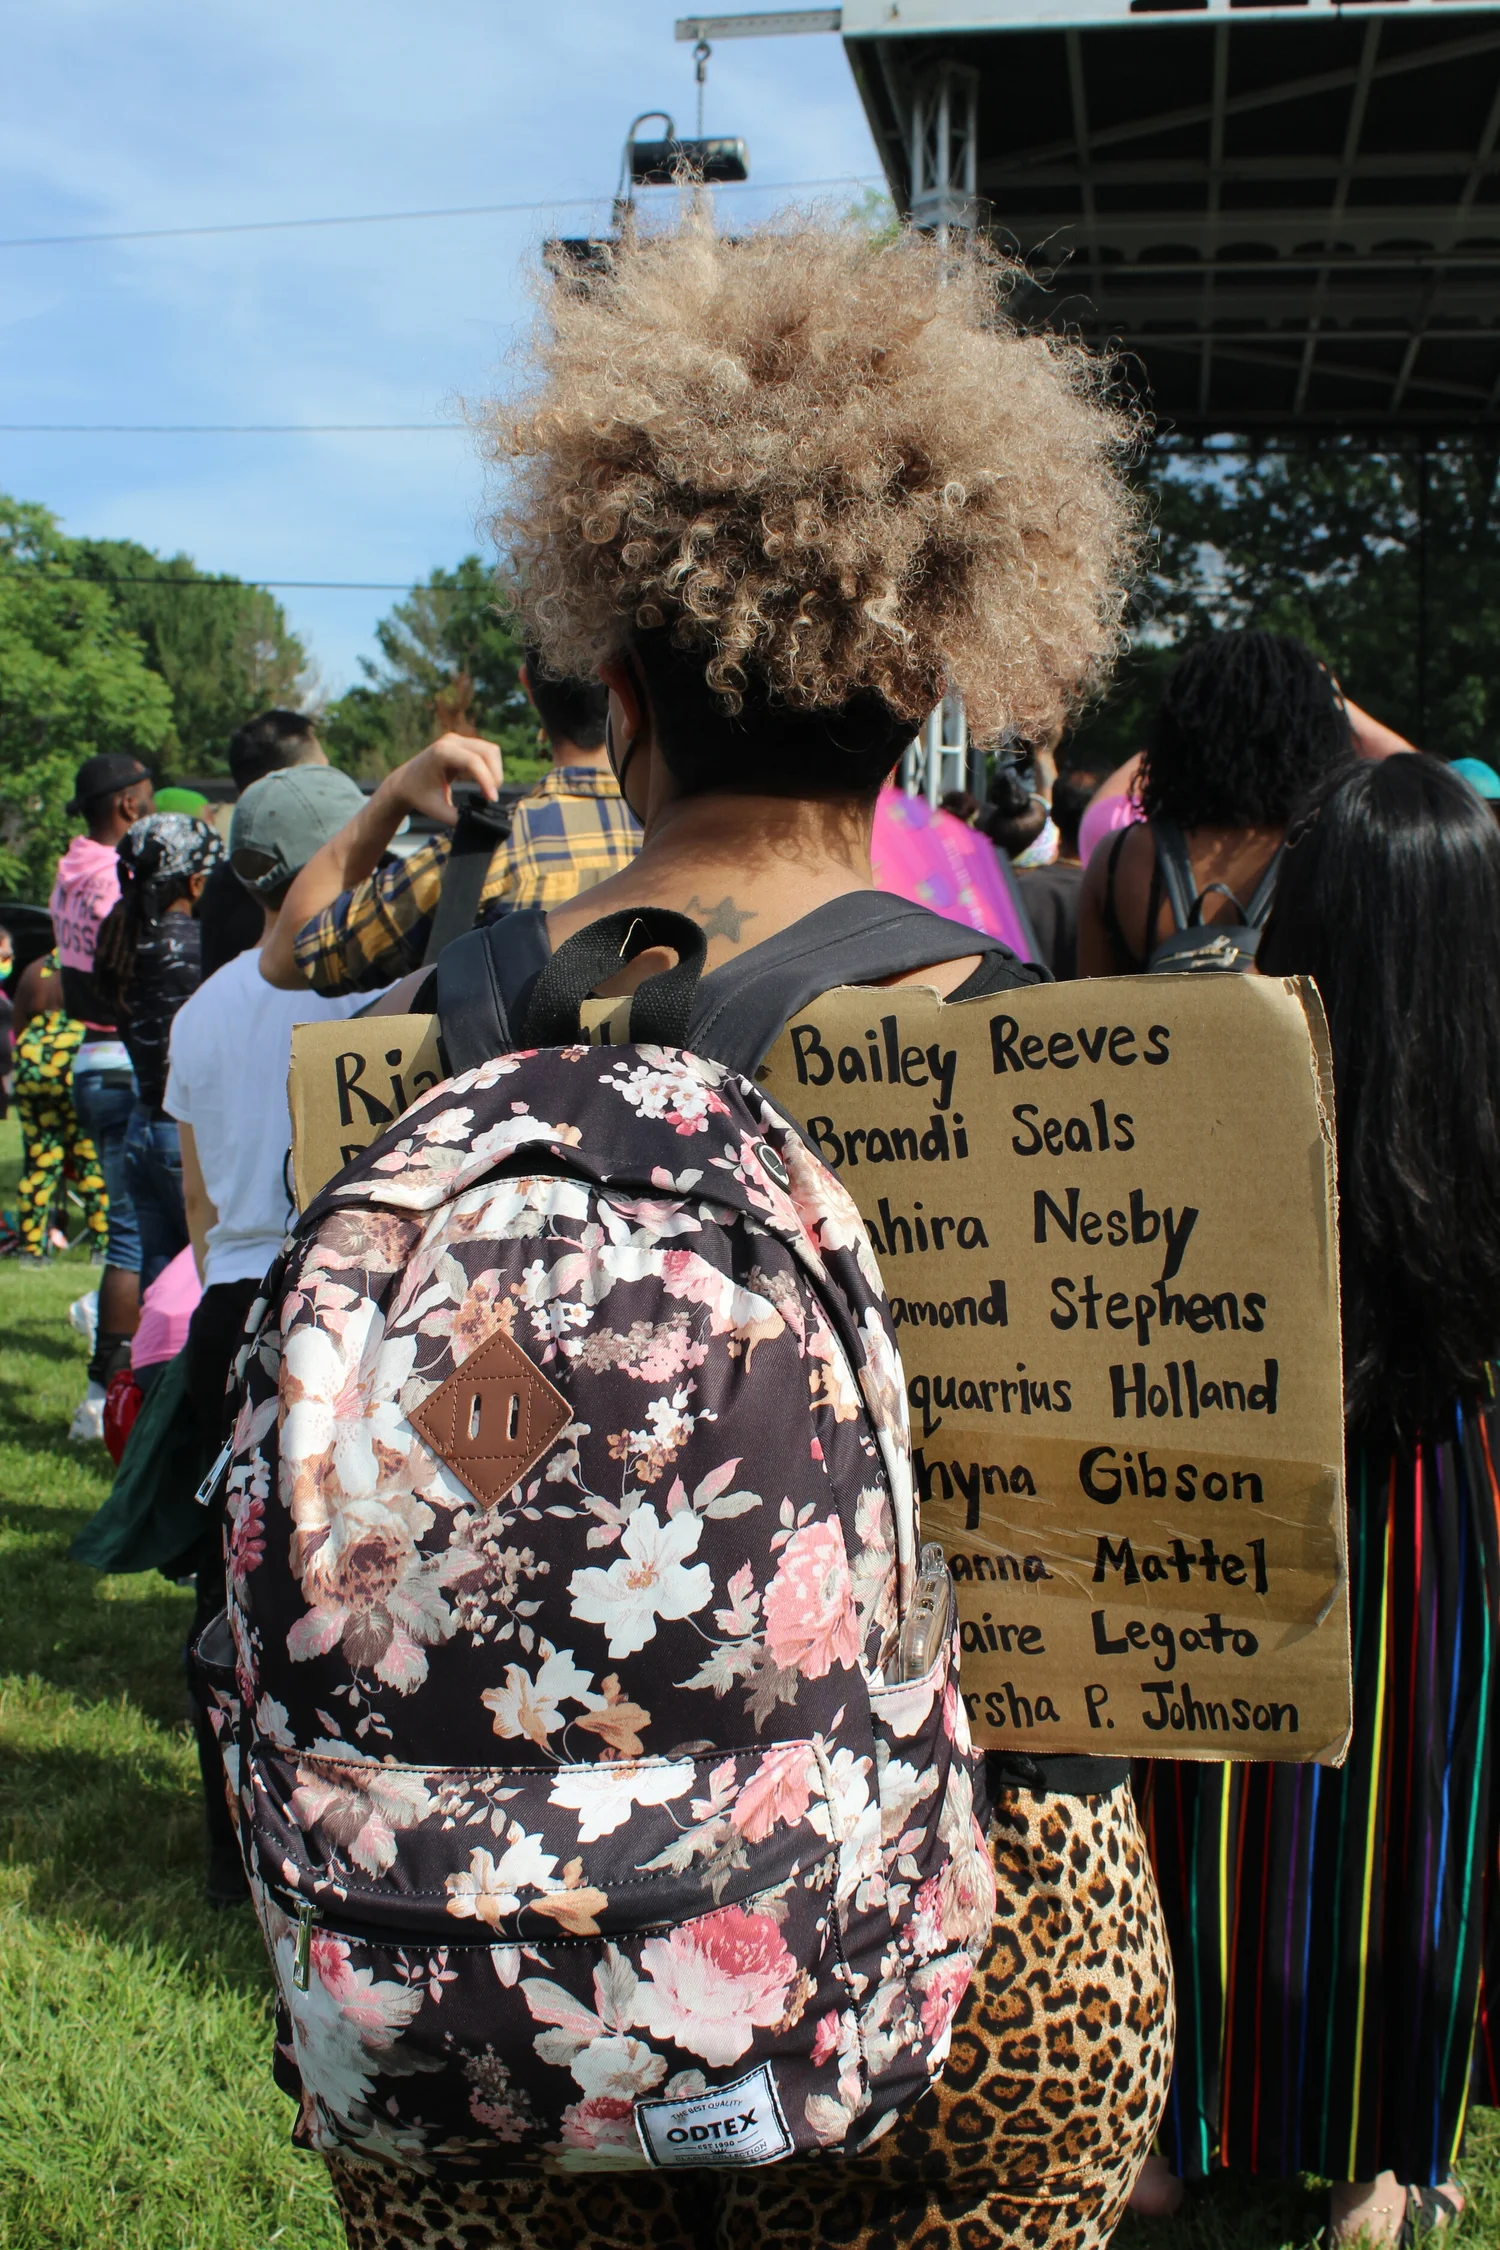 IN THE
Bailey Reeves
Brandi Seals
ahira Nesby
amond Stephens
quarrius Holland
hyna Gibson
anna Mattel
aire Legato
rsha P. Johnson
THE BEST QUALITY
ODTEX
EST 1990
CLASSIC COLLECTION